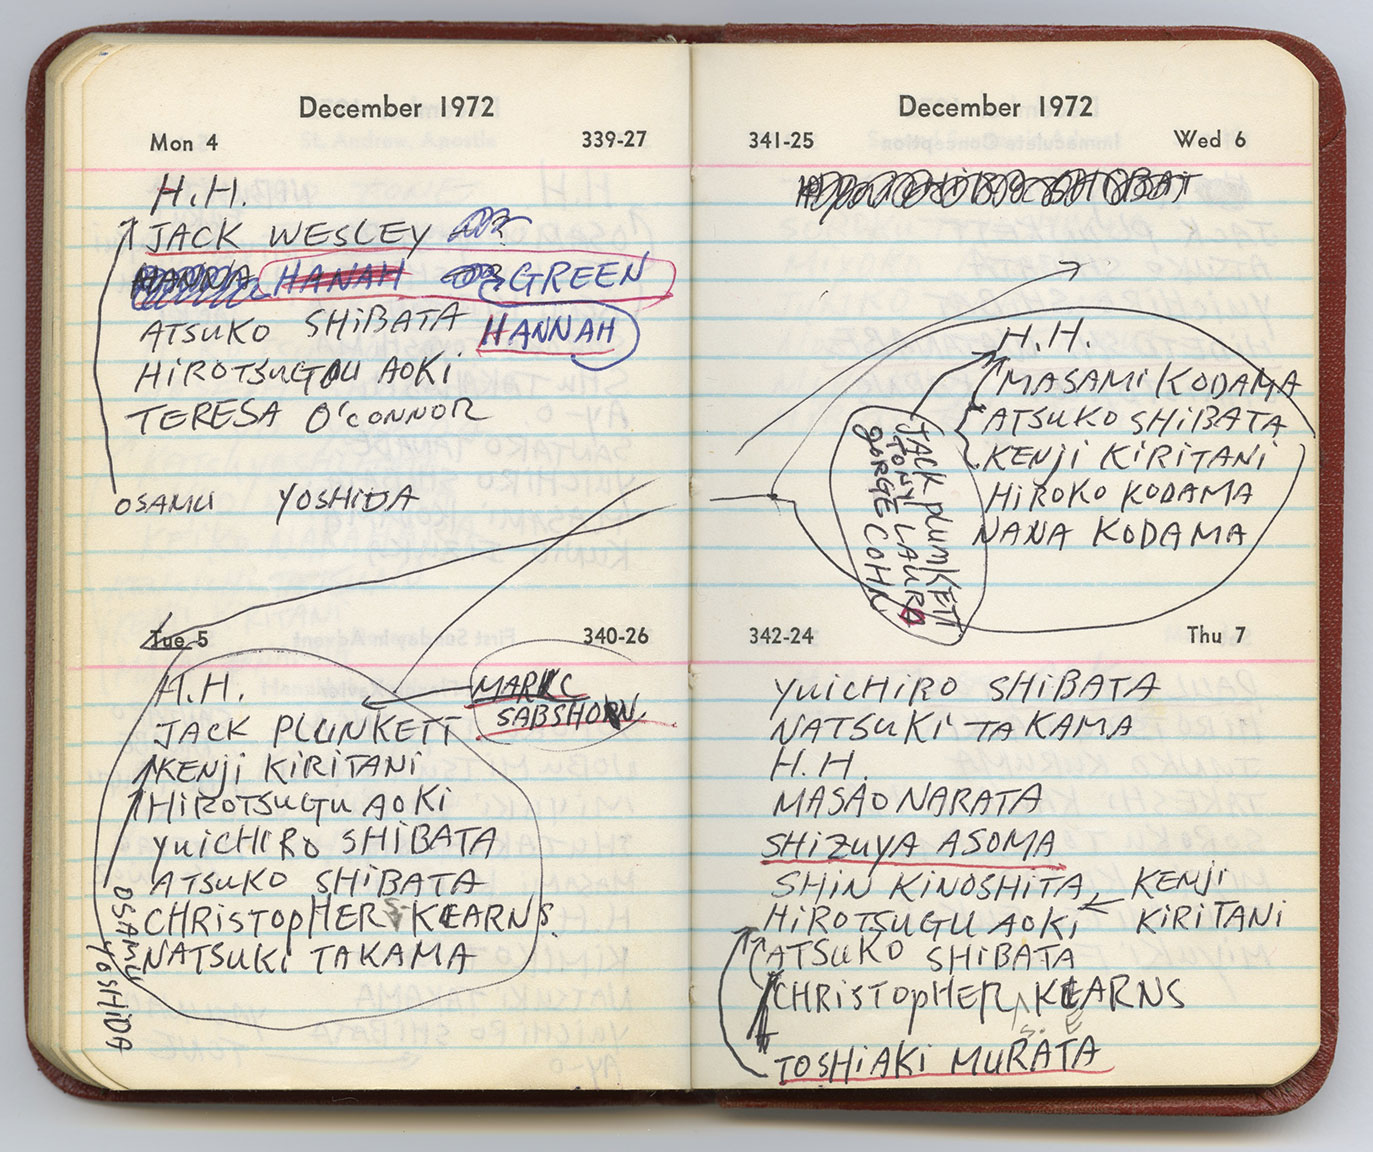 December 1972
Mon 4 339-27
H.H.
JACK WESLEY
HANAH GREEN
ATSUKO SHIBATA HANNAH
HIROTSUGU AOKI
TERESA O'CONNOR
OSAMU YOSHIDA
Tue 5 340-26
H.H.
MARK
SABSHORN
JACK PLUNKETT
KENJI KIRITANI
HIROTSUGU AOKI
YUICHIRO SHIBATA
ATSUKO SHIBATA
CHRISTOPHER S. KEARNS.
NATSUKI TAKAMA
OSAMU YOSHIDA
December 1972
341-25 Wed 6
H.H.
MASAMI KODAMA
ATSUKO SHIBATA
KENJI KIRITANI
HIROKO KODAMA
NANA KODAMA
JACK PLUMKETT
TONY LAURO
GORGE COHN
342-24 Thu 7
YUICHIRO SHIBATA
NATSUKI TAKAMA
H.H.
MASAO NARATA
SHIZUYA ASOMA
SHIN KINOSHITA KENJI
HIROTSUGU AOKI KIRITANI
ATSUKO SHIBATA
CHRISTOPHER S. KEARNS
TOSHIAKI MURATA